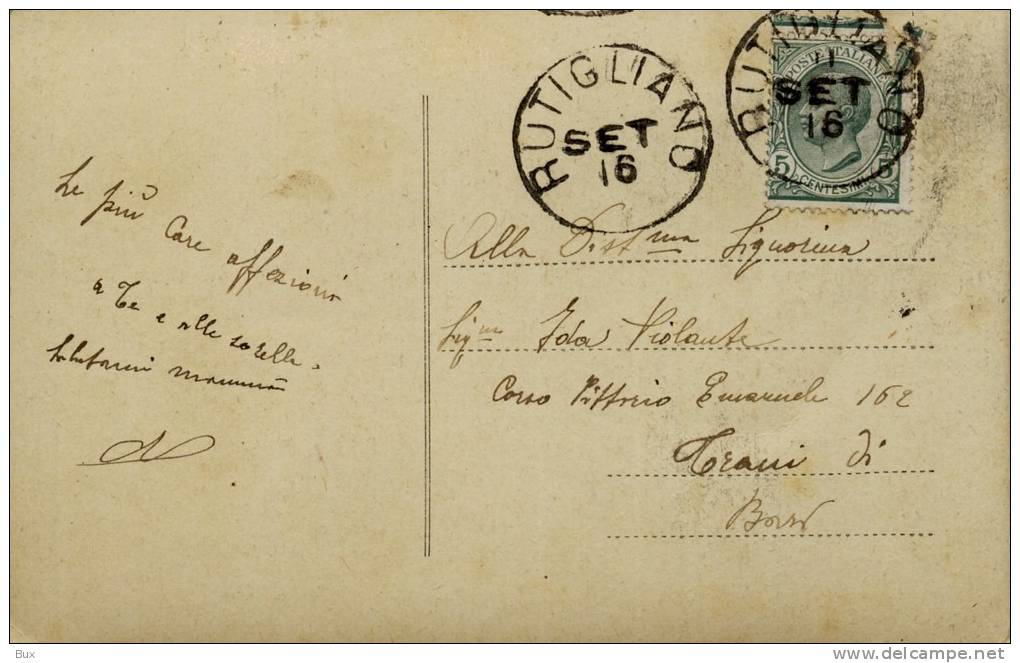 RUTIGLIANO
SET
16
RUTIGLIANO
11
SET
16
POSTE ITALIANE
5 CENTESIMI 5
Le più
care affezioni
a Te e alle sorelle.
Salutami mammà
Alla Dist.ma Signorina
Sig.na Ida Violante
Corso Vittorio Emanuele 162
Trani di
Bari
Bux
delcampe.net